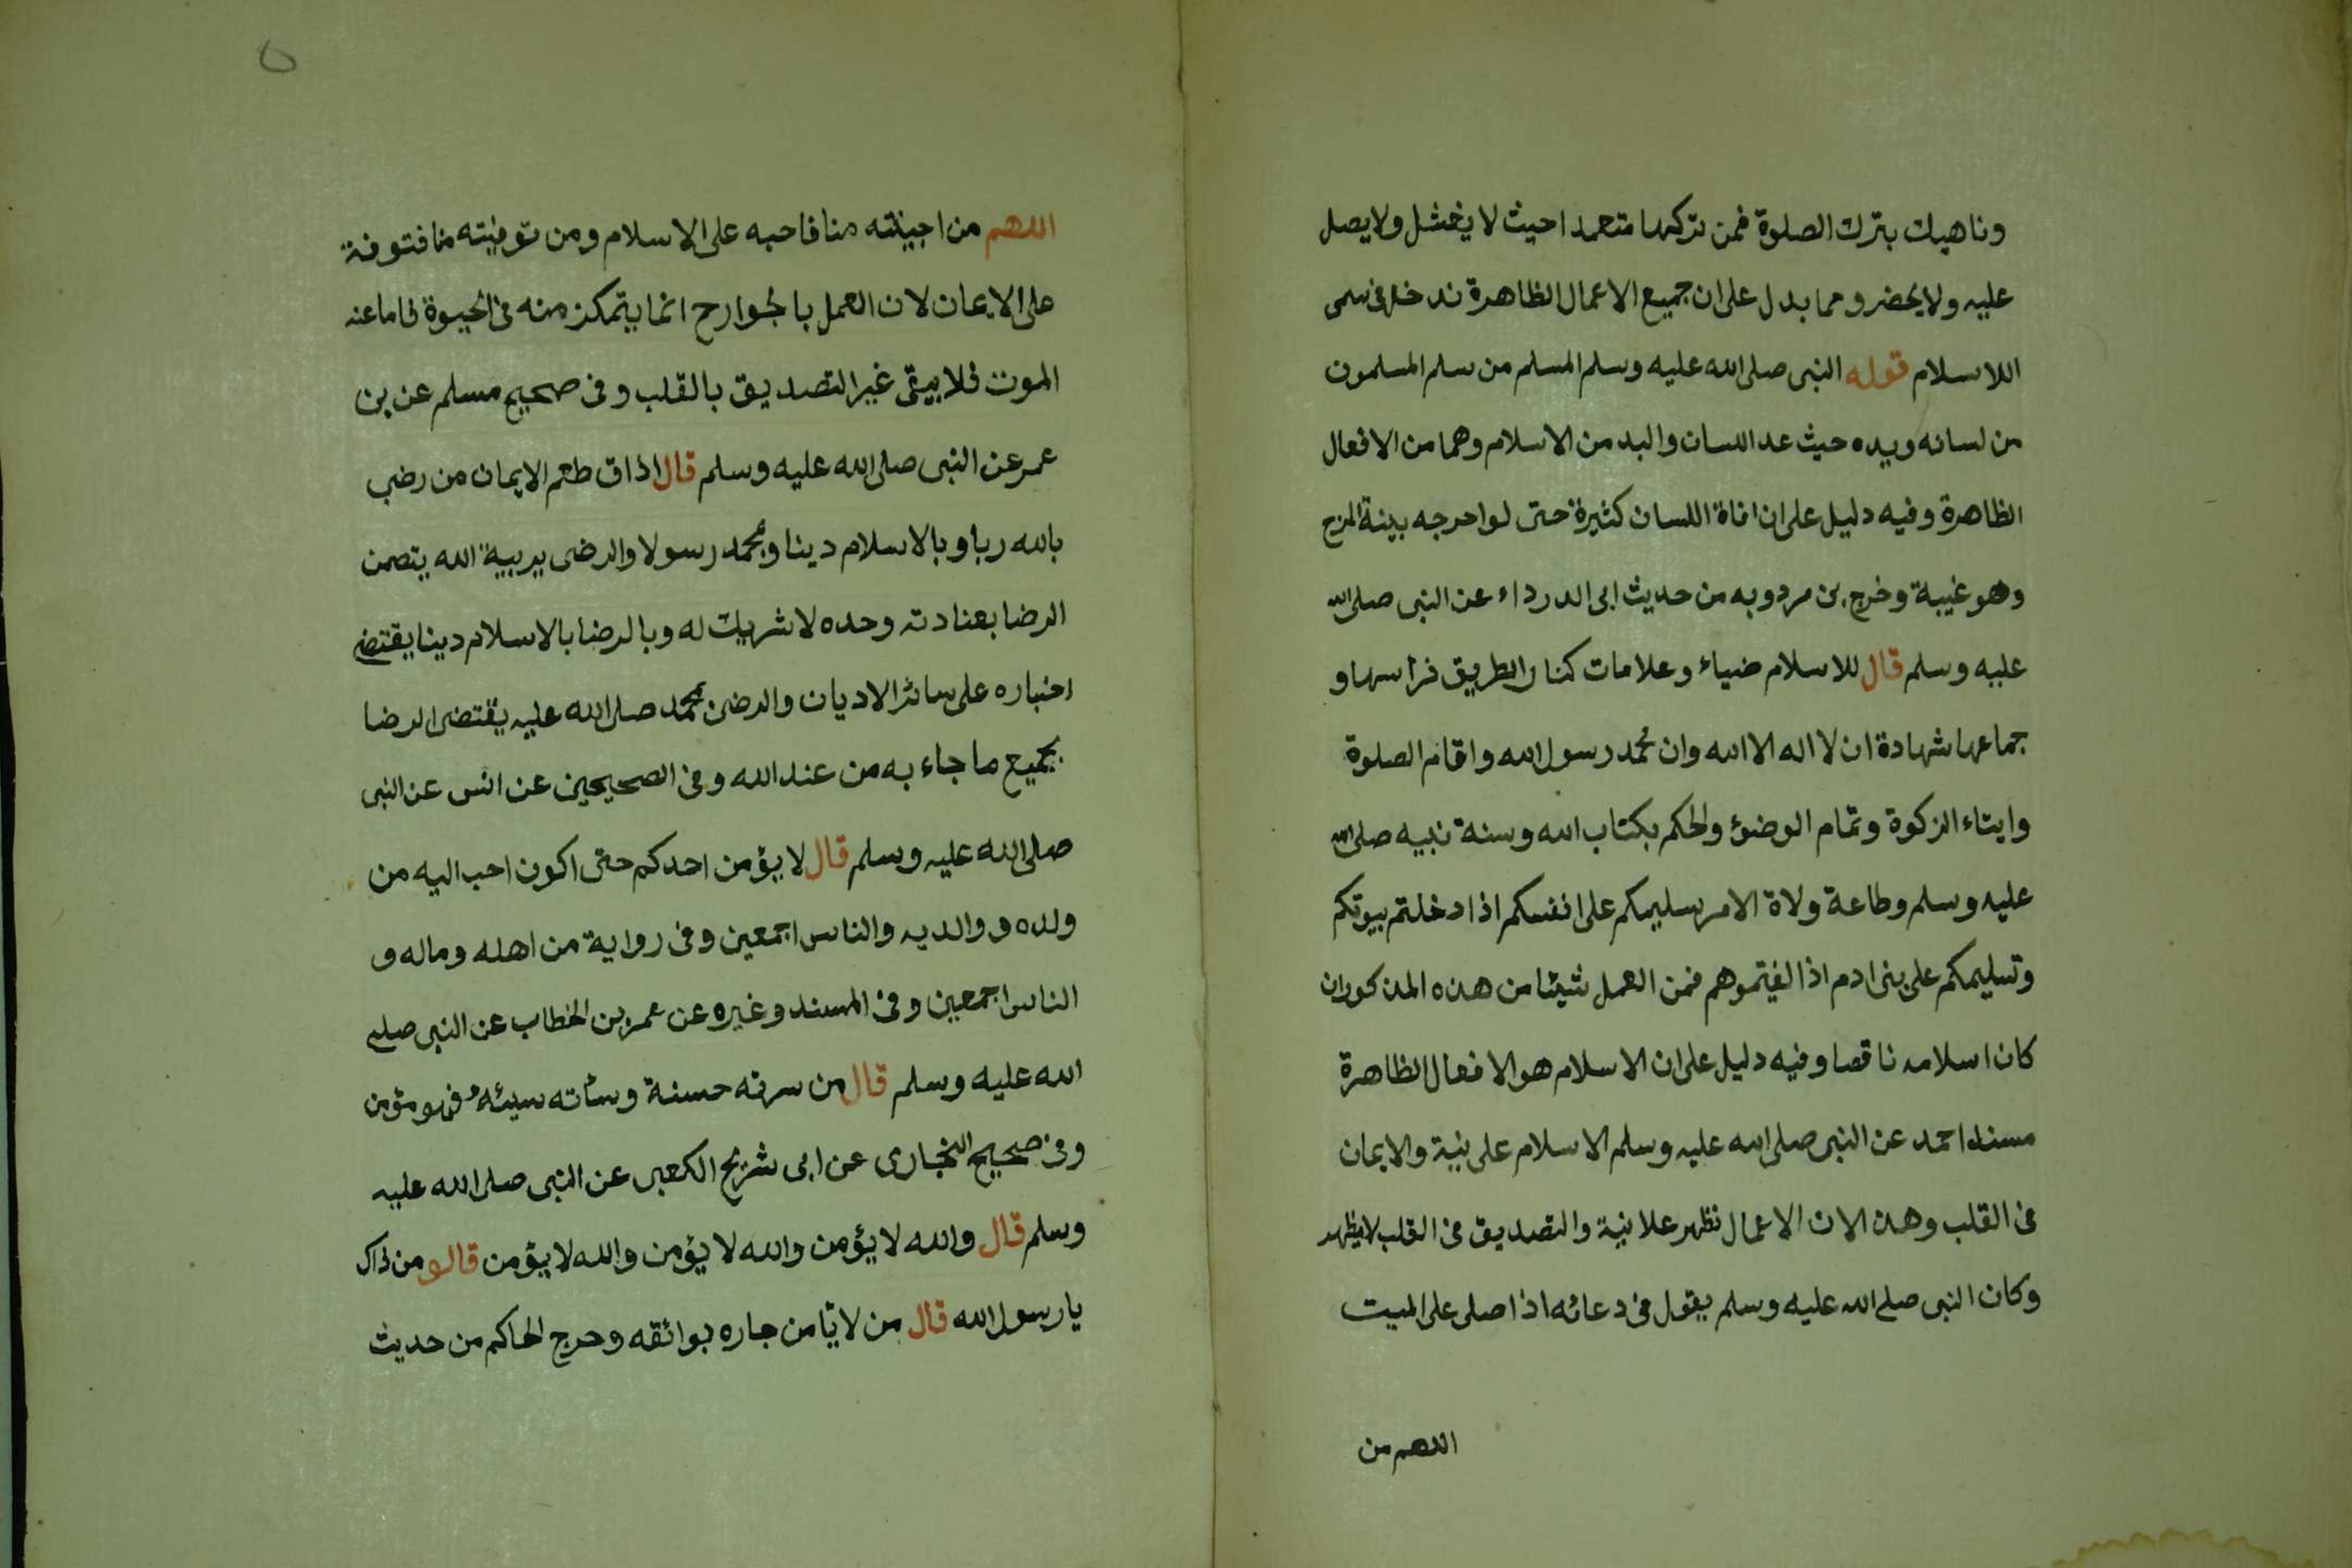 وناهيك بترك الصلوة فمن تركها متعمدا حيث لا يغسل ولا يصل
عليه ولا يحضر ومما يدل على ان جميع الاعمال الظاهرة تدخل فى سمى
اللاسلام قوله النبى صلى الله عليه وسلم المسلم من سلم المسلمون
من لسانه ويده حيث عد اللسان واليد من الاسلام وهما من الافعال
الظاهرة وفيه دليل على ان افاة اللسان كثيرة حتى لو اخرجه بينة المزح
وهو غيبة وخرج بن مردويه من حديث ابى الدرداء عن النبى صلى الله
عليه وسلم قال للاسلام ضياء وعلامات كنار الطريق فراسها و
جماعها شهادة ان لا اله الا الله وان محمد رسول الله واقام الصلوة
وايتاء الزكوة وتمام الوضوء والحكم بكتاب الله وسنة نبيه صلى الله
عليه وسلم وطاعة ولاة الامر سليمكم على انفسكم اذا دخلتم بيوتكم
وتسليمكم على بنى ادم اذا لقيتموهم فمن العمل شيئا من هذه المذكوران
كان اسلامه ناقصا وفيه دليل على ان الاسلام هو الافعال الظاهرة
مسند احمد عن النبى صلى الله عليه وسلم الاسلام على نية والايمان
فى القلب وهذا لان الاعمال تظهر علانية والتصديق فى القلب لا يظهر
وكان النبى صلى الله عليه وسلم يقول فى دعائه اذا صلى على الميت
اللهم من
اللهم من احييته منا فاحيه على الاسلام ومن توفيته منا فتوفة
على الايمان لان العمل بالجوارح انما يتمكن منه فى الحيوة فاما عند
الموت فلا يبقى غير التصديق بالقلب وفى صحيح مسلم عن بن
عمر عن النبى صلى الله عليه وسلم قال اذاق طعم الايمان من رضى
بالله ربا وبالاسلام دينا وبمحمد رسولا والرضى بربية الله يتضمن
الرضا بعبادته وحده لا شريك له وبالرضا بالاسلام دينا يقتضى
اختياره على سائر الاديان والرضى بمحمد صلى الله عليه يقتضى الرضا
بجميع ما جاء به من عند الله وفى الصحيحين عن انس عن النبى
صلى الله عليه وسلم قال لا يؤمن احدكم حتى اكون احب اليه من
ولده و والديه والناس اجمعين وفى رواية من اهله وماله و
الناس اجمعين وفى المسند وغيره عن عمر بن الخطاب عن النبى صلى
الله عليه وسلم قال من سرته حسنة وسأته سيئه فهو مؤمن
وفى صحيح البخارى عن ابى شريح الكعبى عن النبى صلى الله عليه
وسلم قال والله لا يؤمن والله لا يؤمن والله لا يؤمن قالو من ذاك
يا رسول الله قال من لا يأمن جاره بوائقه وخرج الحاكم من حديث